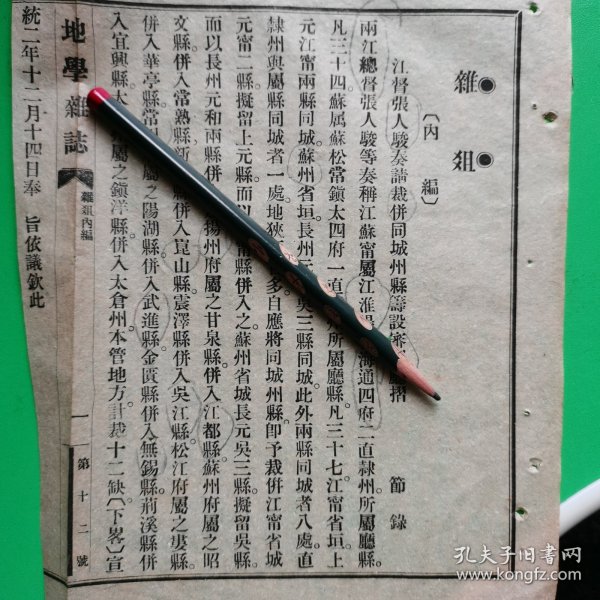 雜俎
〔內編〕
江督張人駿奏請裁併同城州縣籌設審 摺 節錄
兩江總督張人駿等奏稱江蘇甯屬江淮 海通四府二直隸州所屬廳縣
凡三十四蘇属蘇松常鎭太四府一直 州所屬廳縣凡三十七江甯省垣上
元江甯兩縣同城蘇州省垣長州元 吳三縣同城此外兩縣同城者八處直
隸州與屬縣同城者一處地狹 多自應將同城州縣即予裁併江甯省城
元甯二縣擬留上元縣而以 甯縣併入之蘇州省城長元吳三縣擬留吳縣
而以長州元和兩縣併 揚州府屬之甘泉縣併入江都縣蘇州府屬之昭
文縣併入常熟縣新 縣併入崑山縣震澤縣併入吳江縣松江府屬之婁縣
併入華亭縣常 屬之陽湖縣併入武進縣金匱縣併入無錫縣荊溪縣併
入宜興縣太 屬之鎭洋縣併入太倉州本管地方計裁十二缺〔下畧〕宣
地學雜誌 雜俎內編 一 第十二號
統二年十二月十四日奉 旨依議欽此
孔夫子旧书网
www.kongfz.com